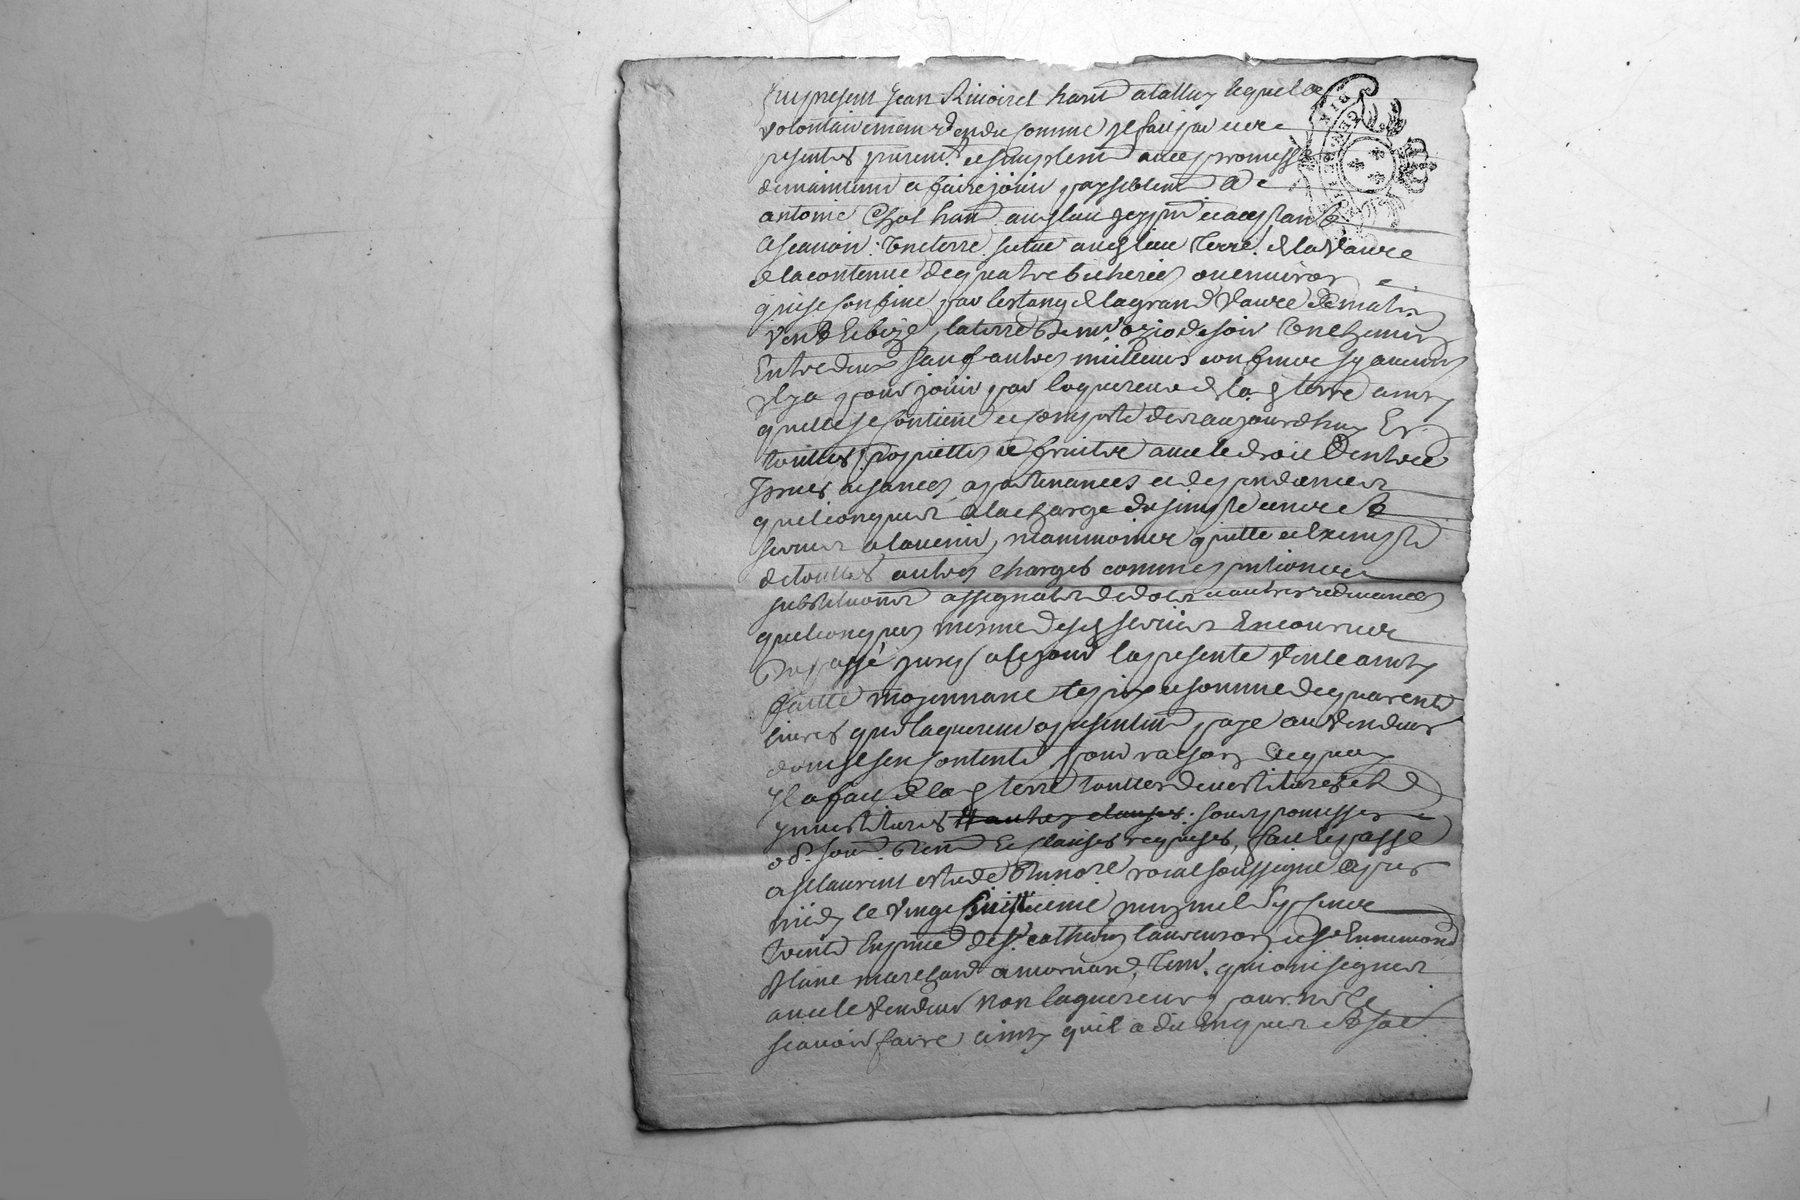 fut present Jean Rivoiret habt a taluy lequel de
volontairement vendu comme jl fait par ces
presentes puremt et simplemt avec promesse
de maintenir et faire jouir paysiblemt a
antoine Chol habt audlieu jcy pnt et acceptant
a scavoir : Une terre située audlieu Terre de la Vaure
de la contenue de quatre bicherées ou environ
qui se confine par lestang de la grand Vaure de matin
Vent & bize, la terre de mr ozio de soir Un chemin
Entre deux sauf autres meilleurs confins sy aucuns
jl y a pour jouir par laquereur de la d terre ainsy
quelle se contient et comporte des aujourdhuy En
touttes proprietté et fruits avec le droit dentrée
jssues aisances apartenances et dependances
quelconques a la charge du simple cens et
servis a lavenir, neanmoins quitte et exempte
de touttes autres charges comme pentions
substitutions assignations de dots et autres redevances
quelconques mesme desd servis Encourus
du passé jusqs a ce jour la presente vente ainsy
faitte moyennant le prix et somme de quarente
livres que laquereur a presentemt payé au Vendeur
dont jl sen contente pour raison de quoy
jl a fait de la d terre touttes devestitures et
jnvestitures et autres clauses : sous promesses
obt. soum. renon & clauses requises, fait & passé
a st laurent estude du nore roial soussigné apres
midy le vingt huitieme juin mil sept cent
trente En pnce de sr cathelin laurenson et sr Ennemond
blanc marchand a mornand, tem. qui ont signé
avec le vendeur non laquereur pour ne le
scavoir faire ainsy quil a dit enquis et